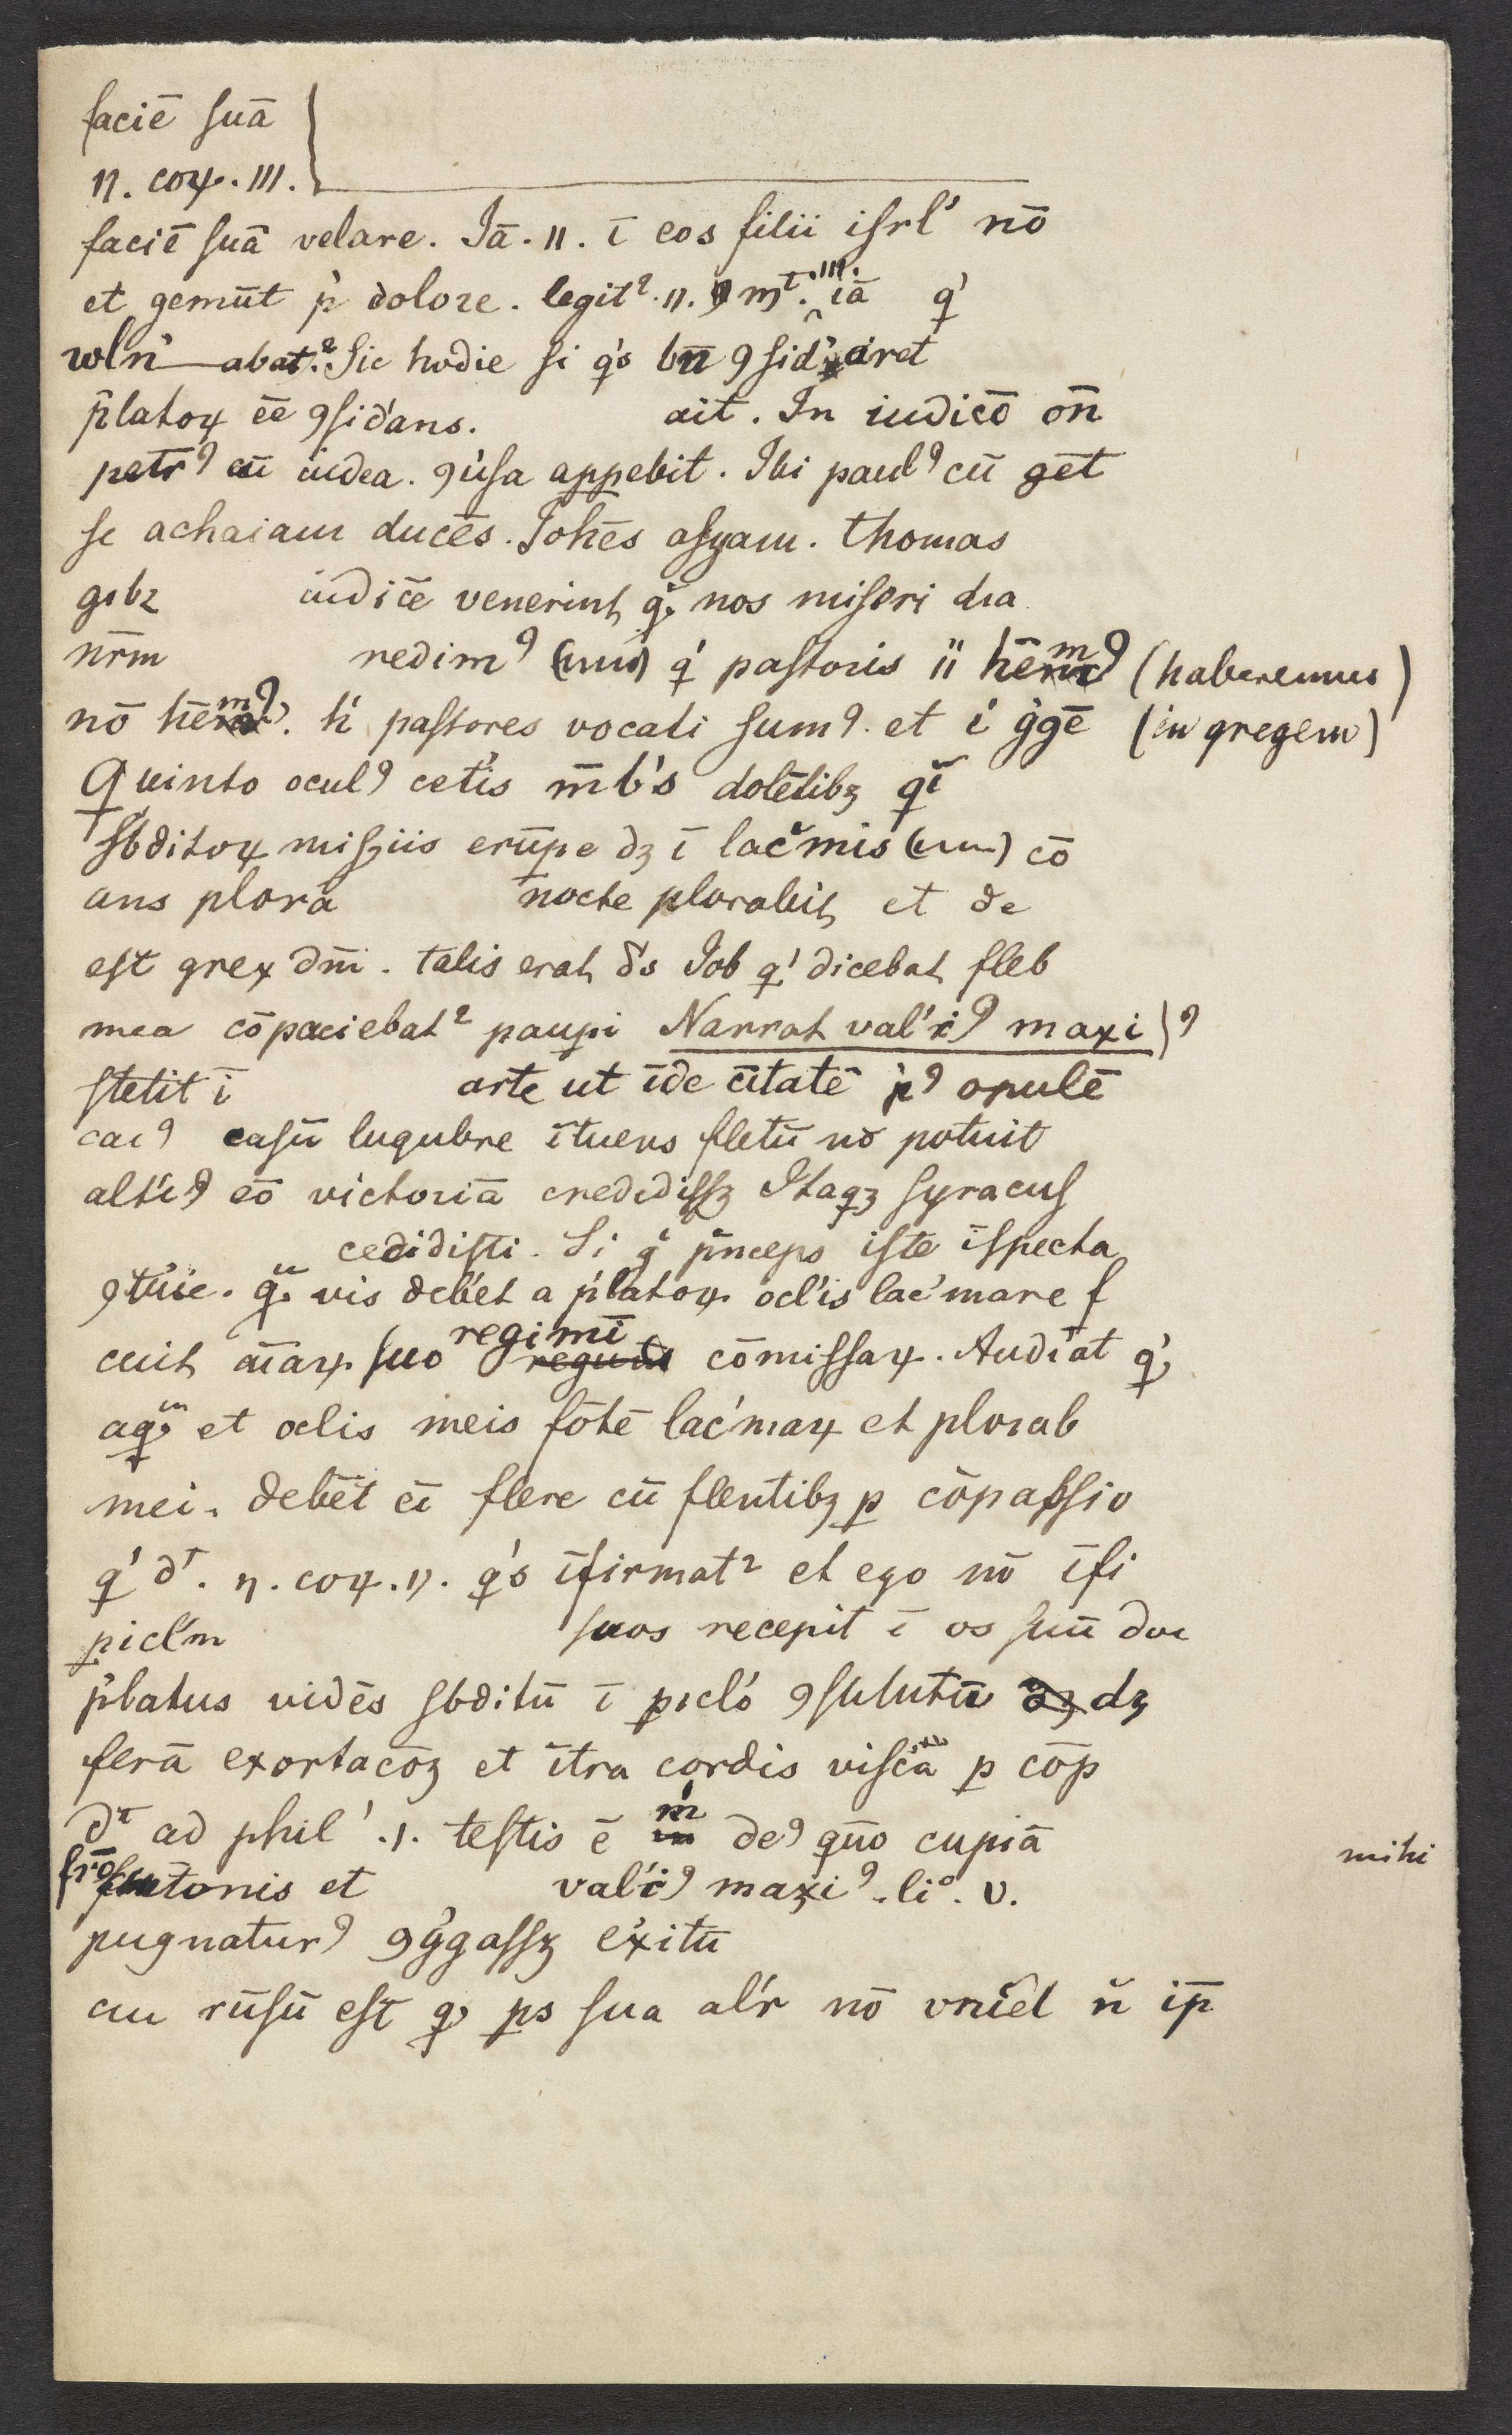 faciē ſuā
II. coꝝ. III.
faciē ſuā velare. Iā. II. ī eos filii iſrl' nō
et gemūt p̄ dolore. legit². II. mͭ. III. iā q'
wl'n' abat². Sic hodie ſi q's bn̄ ꝯſid' aret
p̄latoꝝ ēē ꝯſid'ans. ait. In iudicō on̄
petr̄ꝰ cū iudea. ꝯ'uſa appebit. Ibi paulꝰ cū gēt
ſe achaiam ducēs. Johēs aſyam. thomas
gıbꝫ iudicē venerint qͥ nos miſeri dıa
nr̄m redimꝰ q' paſtoris ıı hēmꝰ (haberemus)
nō hēmꝰ. h' paſtores vocati ſumꝰ. et i' g'gē (in gregem)
Quinto oculꝰ cet'is m̄b's dolētibꝫ qı̄
ſbditoꝝ miſꝫiis erūpe dꝫ ī lac̄mis cō
ans plorā nocte plorabit et de
eſt grex dn̄i. talis erat b's Iob q' dicebat fleb
mea cōpaciebat² paupi Narrat val'iꝰ maxi ꝰ
ſtetit ī arte ut īde c̄itatē pꝰ opulē
caıꝰ caſū lugubre ītuens fletū nō potuit
alt'iꝰ eō victoriā credidiſſꝫ Itaqꝫ ſyracuſ
cecidiſti. Si gͦ p̄nceps iſte īſpecta
ꝯt'uic. qͣ vis deb'et a p'latoꝝ. ocl'is lac'mare f
cuit aı̄aꝝ. ſuo regimī cōmiſſaꝝ. Audiat q'
aqͫ et oclis meis fōtē lac'maꝝ et plorab
mei. debēt eī flere cū flentibꝫ p cōpaſſio
q' dͭ. II. coꝝ. II. q's īfirmat² et ego nō īfi
picl'm ſuos recepit ī os ſuū doc
p'latus vidēs ſbditū ī picl'o ꝯſtitutū dꝫ
ferā exortacōꝫ et ītra cordis viſc'a p cōp
dͭ ad phil'. I. teſtis ē m' deꝰ qn̄o cupiā mihi
frōtonis et val'iꝰ maxiꝰ. liº. v.
pugnaturꝰ ꝯg'gaſſꝫ ex'itū
cu rūſū eſt qͥ ps ſua al'r nō vnīct n̄ ip̄